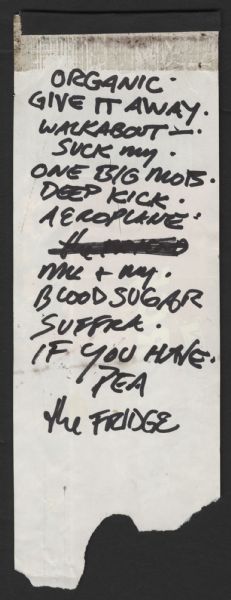 ORGANIC.
GIVE IT AWAY.
WALKABOUT -.
SUCK my.
ONE BIG MOB.
DEEP KICK.
AEROPLANE.
the
me + my.
BLOOD SUGAR
SUFFRA.
IF YOU HAVE.
PEA
the FRIDGE